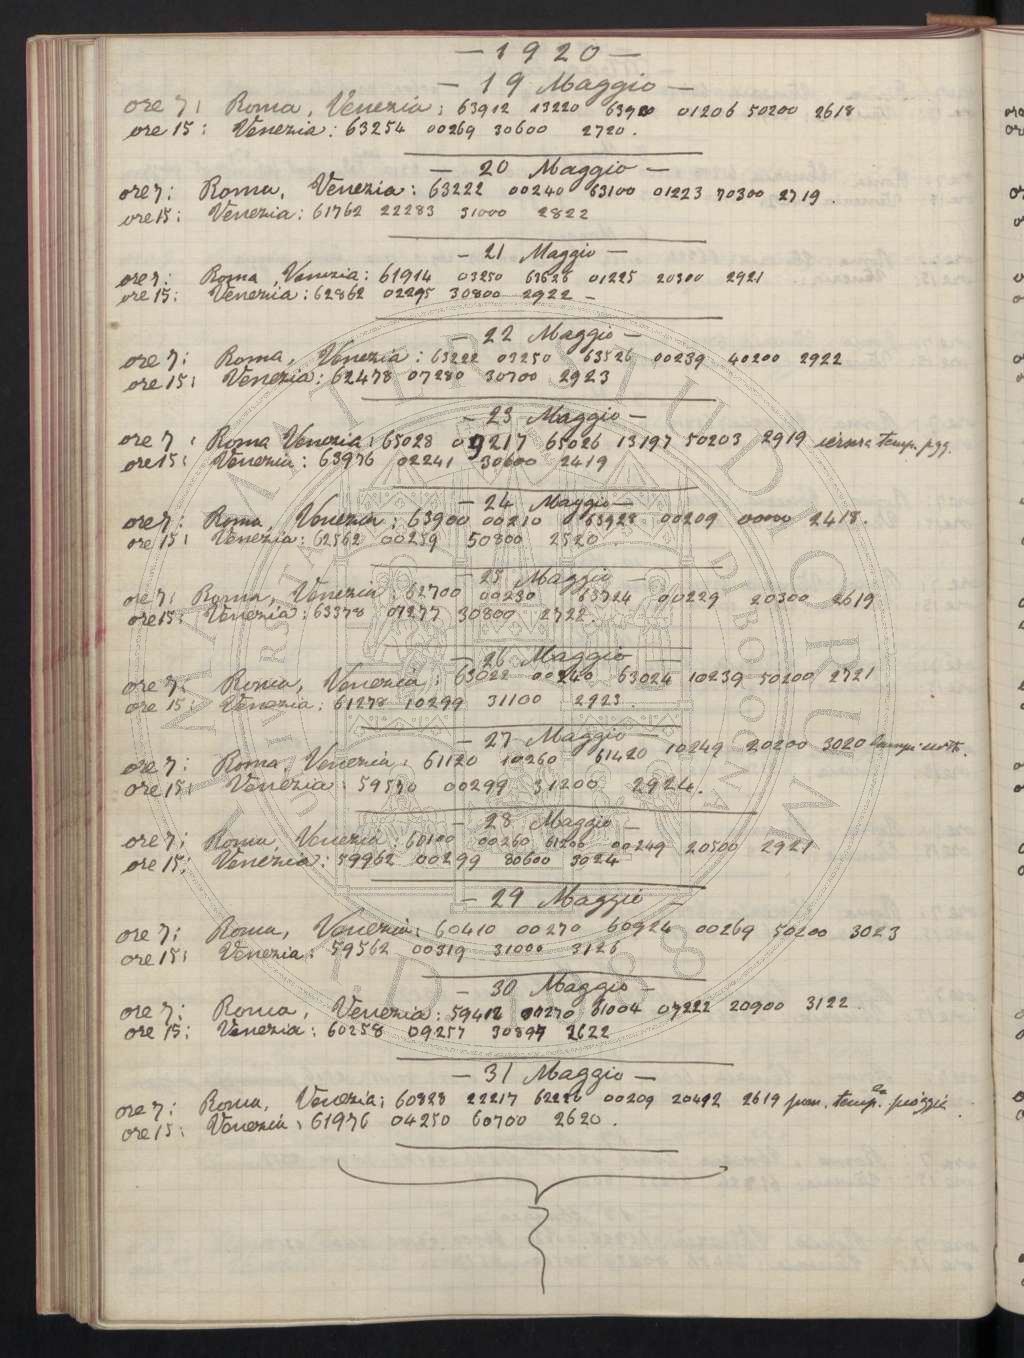 — 1920 —
— 19 Maggio —
ore 7: Roma, Venezia: 63912 13220 01206 50200 2618
ore 15: Venezia: 63254 00269 30600 2720.
— 20 Maggio —
ore 7: Roma, Venezia: 63222 00240 63100 01223 70300 2719.
ore 15: Venezia: 61762 22283 31000 2822
— 21 Maggio —
ore 7: Roma, Venezia: 61914 03250 63626 01225 20300 2921
ore 15: Venezia: 62862 02295 30800 2922 —
— 22 Maggio —
ore 7: Roma, Venezia: 63222 03250 63526 00239 40200 2922
ore 15: Venezia: 62478 07280 30700 2923
— 23 Maggio —
ore 7: Roma Venezia: 65028 09217 65026 13197 50203 2919 temp. pgg.
ore 15: Venezia: 63976 02241 30600 2419
— 24 Maggio —
ore 7: Roma, Venezia: 63900 00210 63928 00209 00000 2418.
ore 15: Venezia: 62562 00259 50800 2520.
— 25 Maggio —
ore 7: Roma, Venezia: 62700 00230 63724 00229 20300 2619
ore 15: Venezia: 63378 07277 30800 2722.
— 26 Maggio —
ore 7: Roma, Venezia: 63022 00240 63024 10239 50200 2721
ore 15: Venezia: 61278 10299 31100 2923.
— 27 Maggio —
ore 7: Roma, Venezia: 61120 10260 61420 10249 20200 3020
ore 15: Venezia: 59570 00299 31200 2924.
— 28 Maggio —
ore 7: Roma, Venezia: 60100 00260 61206 00249 20500 2921
ore 15: Venezia: 59962 00299 30600 3024
— 29 Maggio —
ore 7: Roma, Venezia: 60410 00270 60924 00269 50200 3023
ore 15: Venezia: 59562 00319 31000 3126
— 30 Maggio —
ore 7: Roma, Venezia: 59412 00270 61004 07222 20900 3122
ore 15: Venezia: 60258 09257 30897 2622
— 31 Maggio —
ore 7: Roma, Venezia: 60828 22217 62226 00209 20492 2619 temp. pioggia.
ore 15: Venezia: 61976 04250 60700 2620.